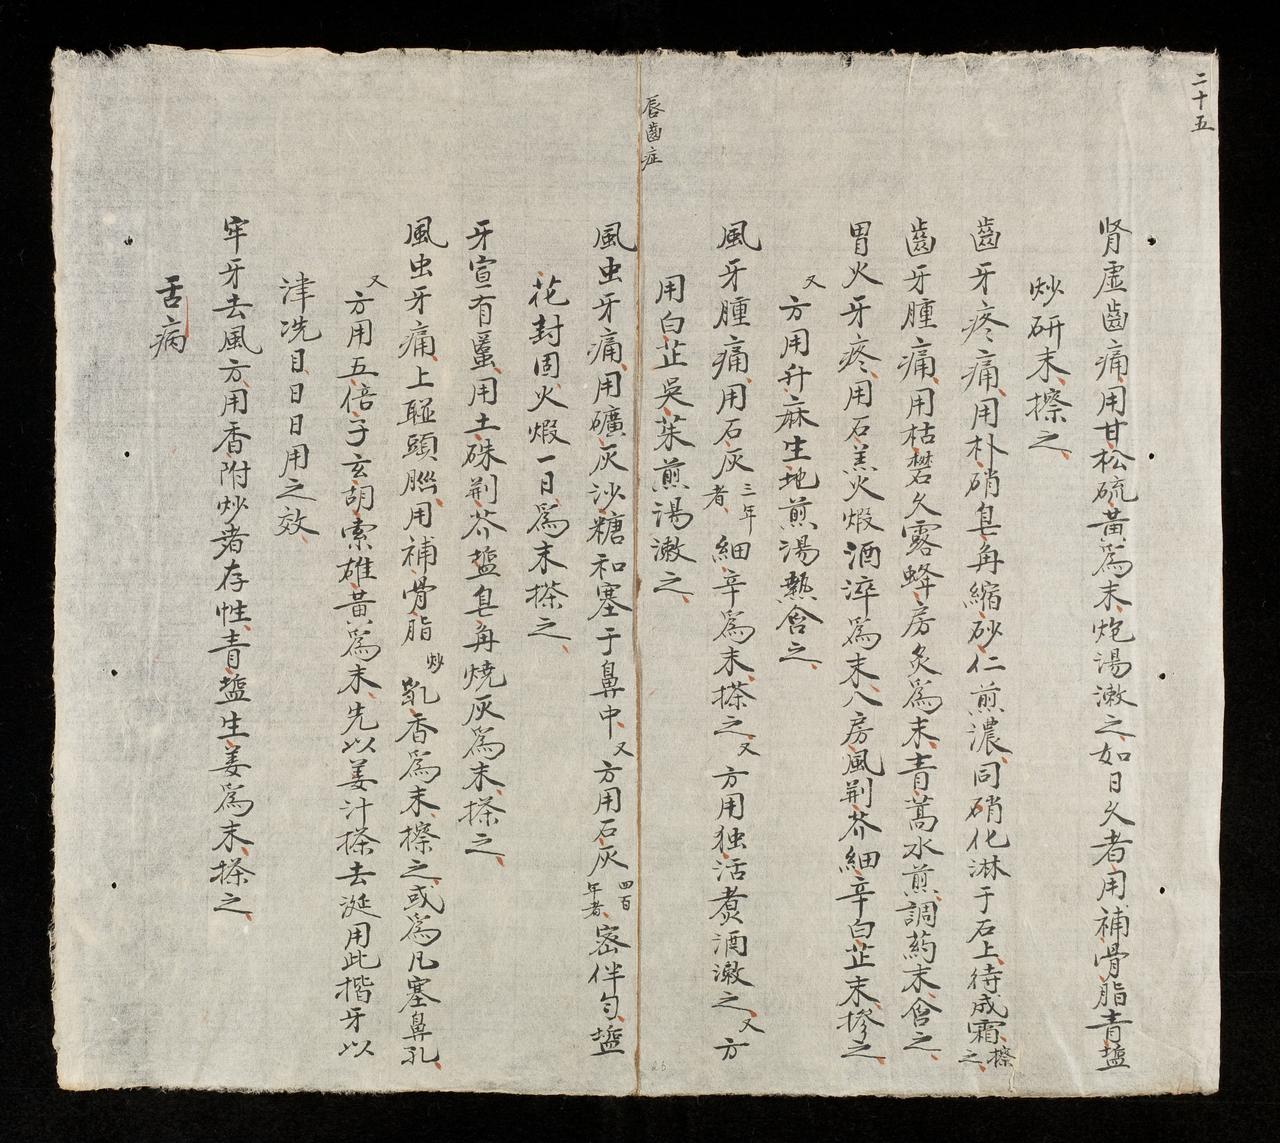 二十五
肾虚齒痛用甘松硫黃為末炮湯漱之如日久者用補骨脂青塩
炒研末擦之
齒牙疼痛用朴硝皂角縮砂仁煎濃同硝化淋于石上待成霜擦之
齒牙腫痛用枯礬久露蜂房炙為末青蒿水煎調药末含之
胃火牙疼用石羔火煅酒淬為末入房風荆芥細辛白芷末摻之
又方用升麻生地煎湯熱含之
風牙腫痛用石灰三年者細辛為末搽之又方用独活煮酒漱之又方
用白芷吳茱煎湯漱之
唇齒症
風虫牙痛用礦灰沙糖和塞于鼻中又方用石灰四百年者密伴匀塩
花封固火煅一日為末搽之
牙宣有䘌用土硃荆芥塩皂角燒灰為末搽之
風虫牙痛上聢頭腦用補骨脂炒乳香為末擦之或為凡塞鼻孔
又方用五倍子玄胡索雄黃為末先以姜汁搽去涎用此揩牙以
津洗目日日用之效
牢牙去風方用香附炒者存性青塩生姜為末搽之
舌病